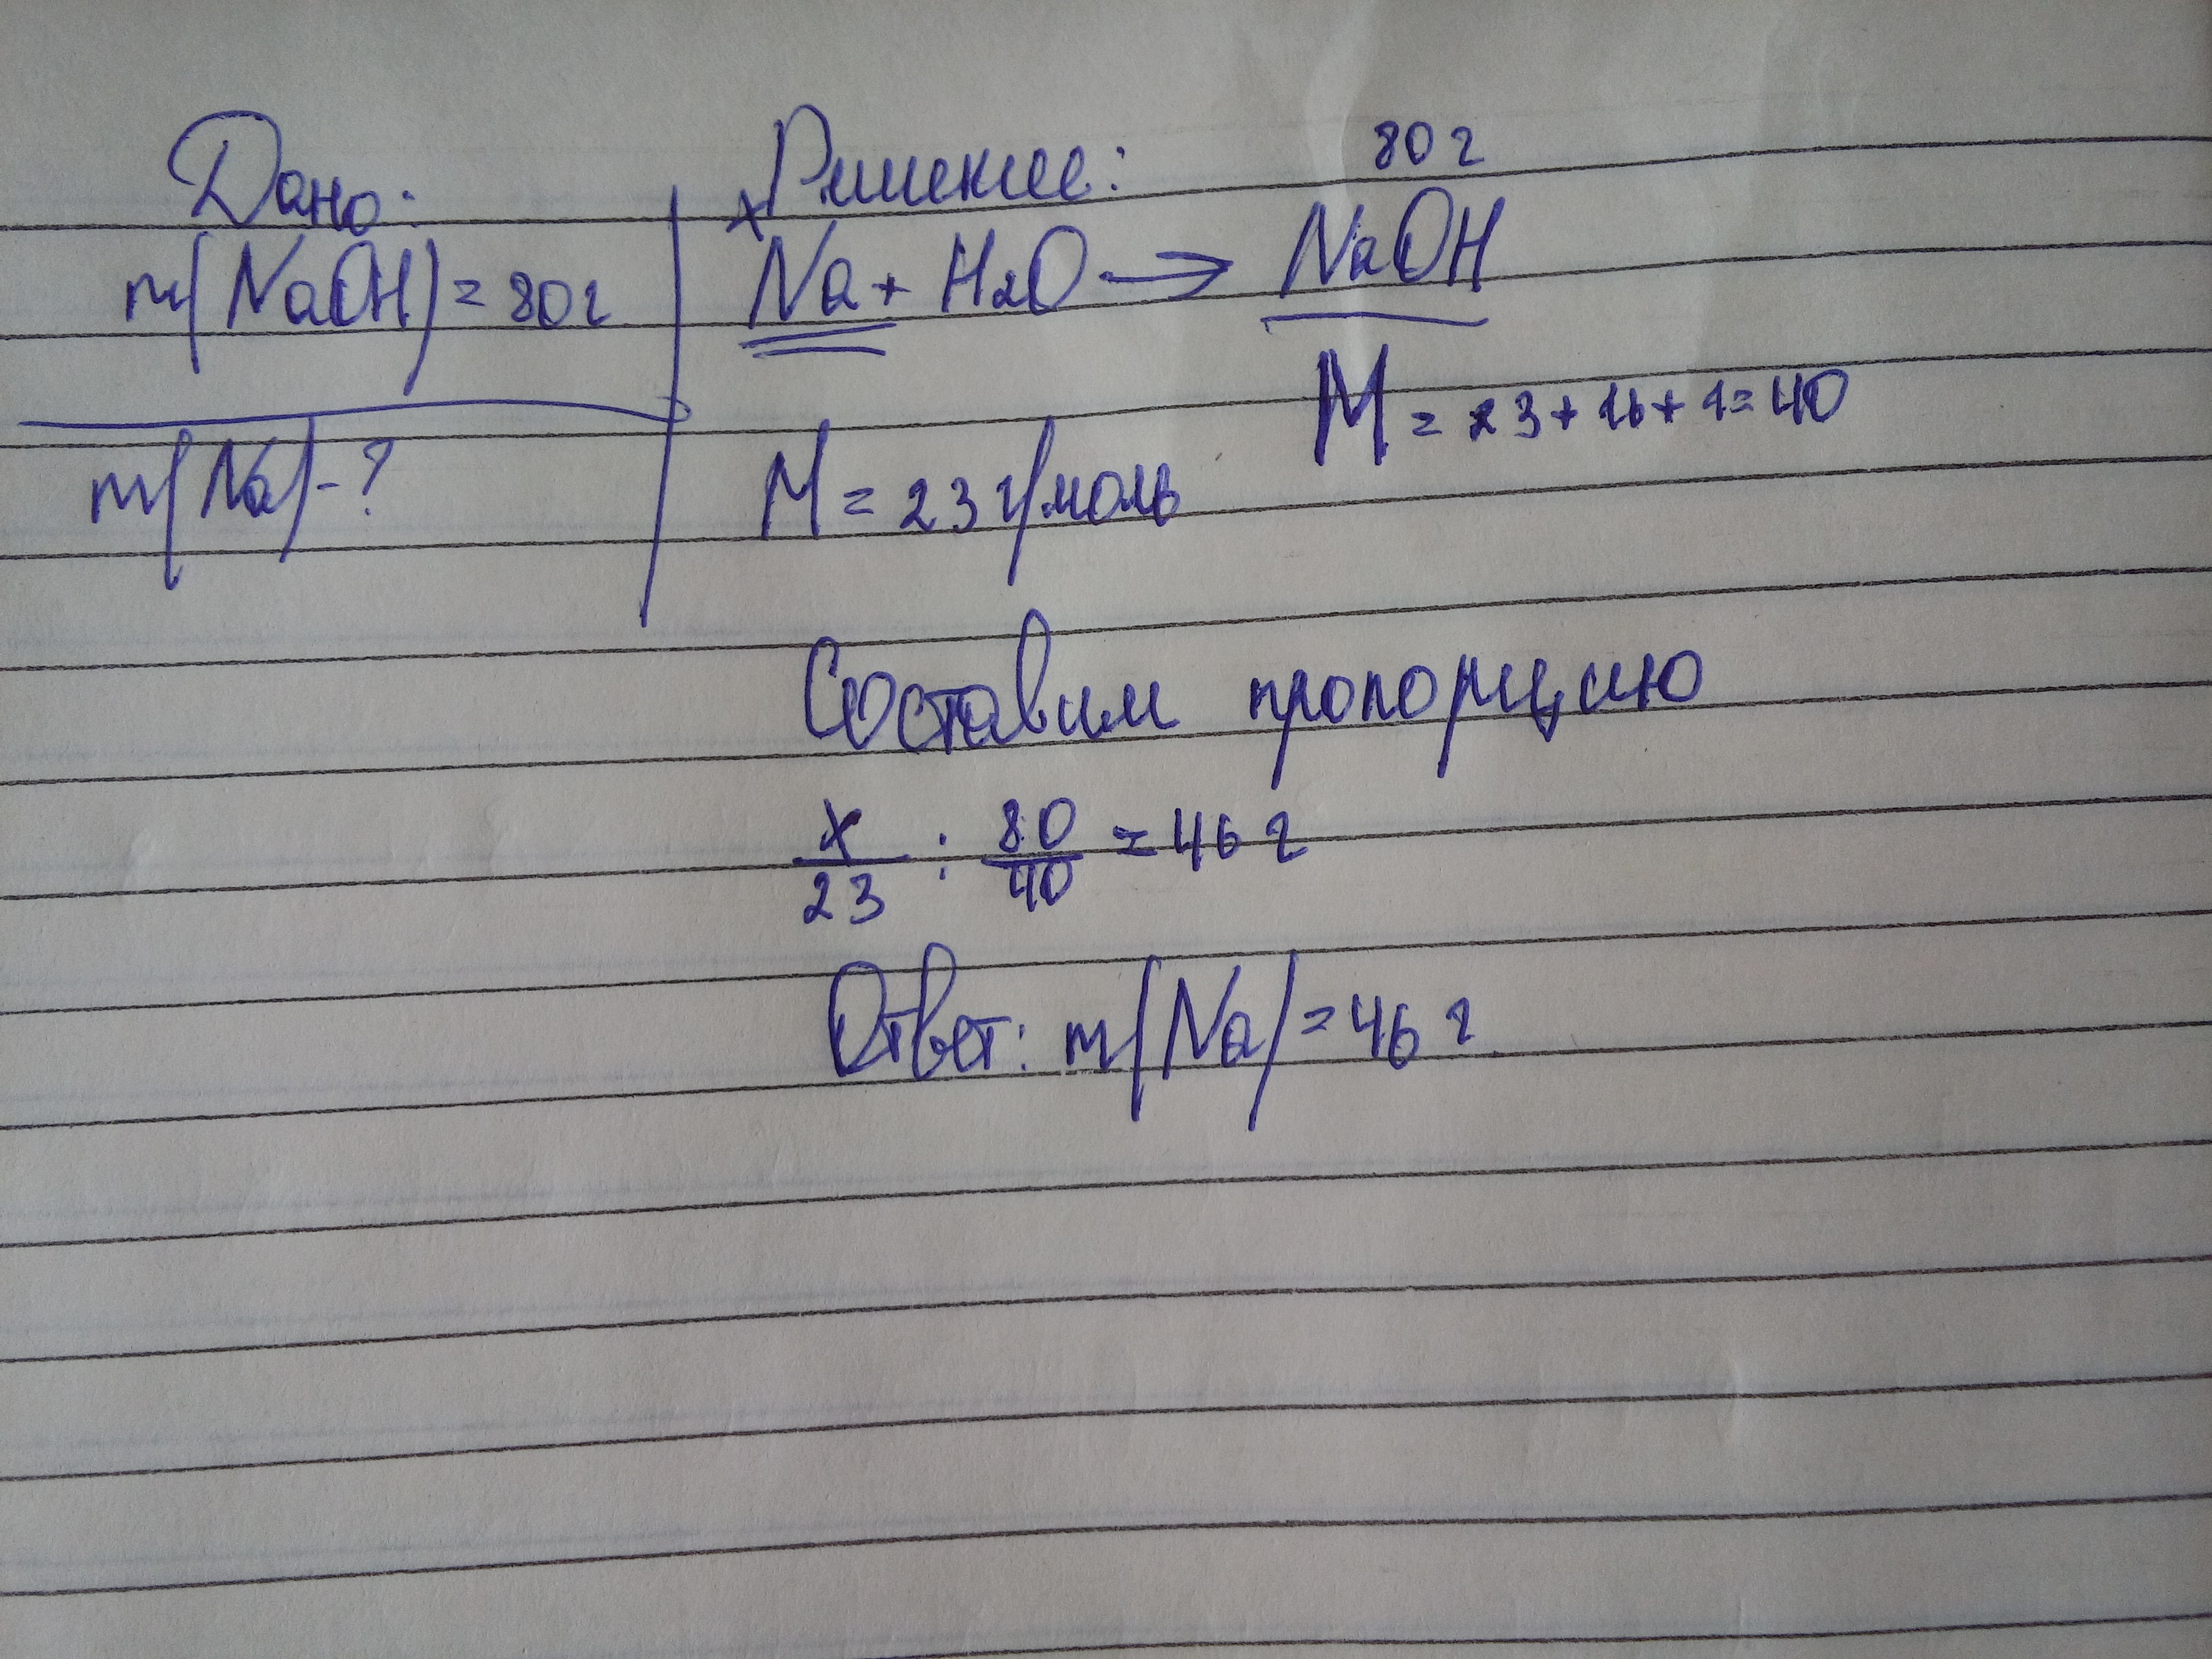 Дано:
m(NaOH) = 80 г
m(Na) - ?
Решение:
80 г
x
Na + H2O → NaOH
M = 23 + 16 + 1 = 40
M = 23 г/моль
Составим пропорцию
x/23 : 80/40 = 46 г
Ответ: m(Na) = 46 г